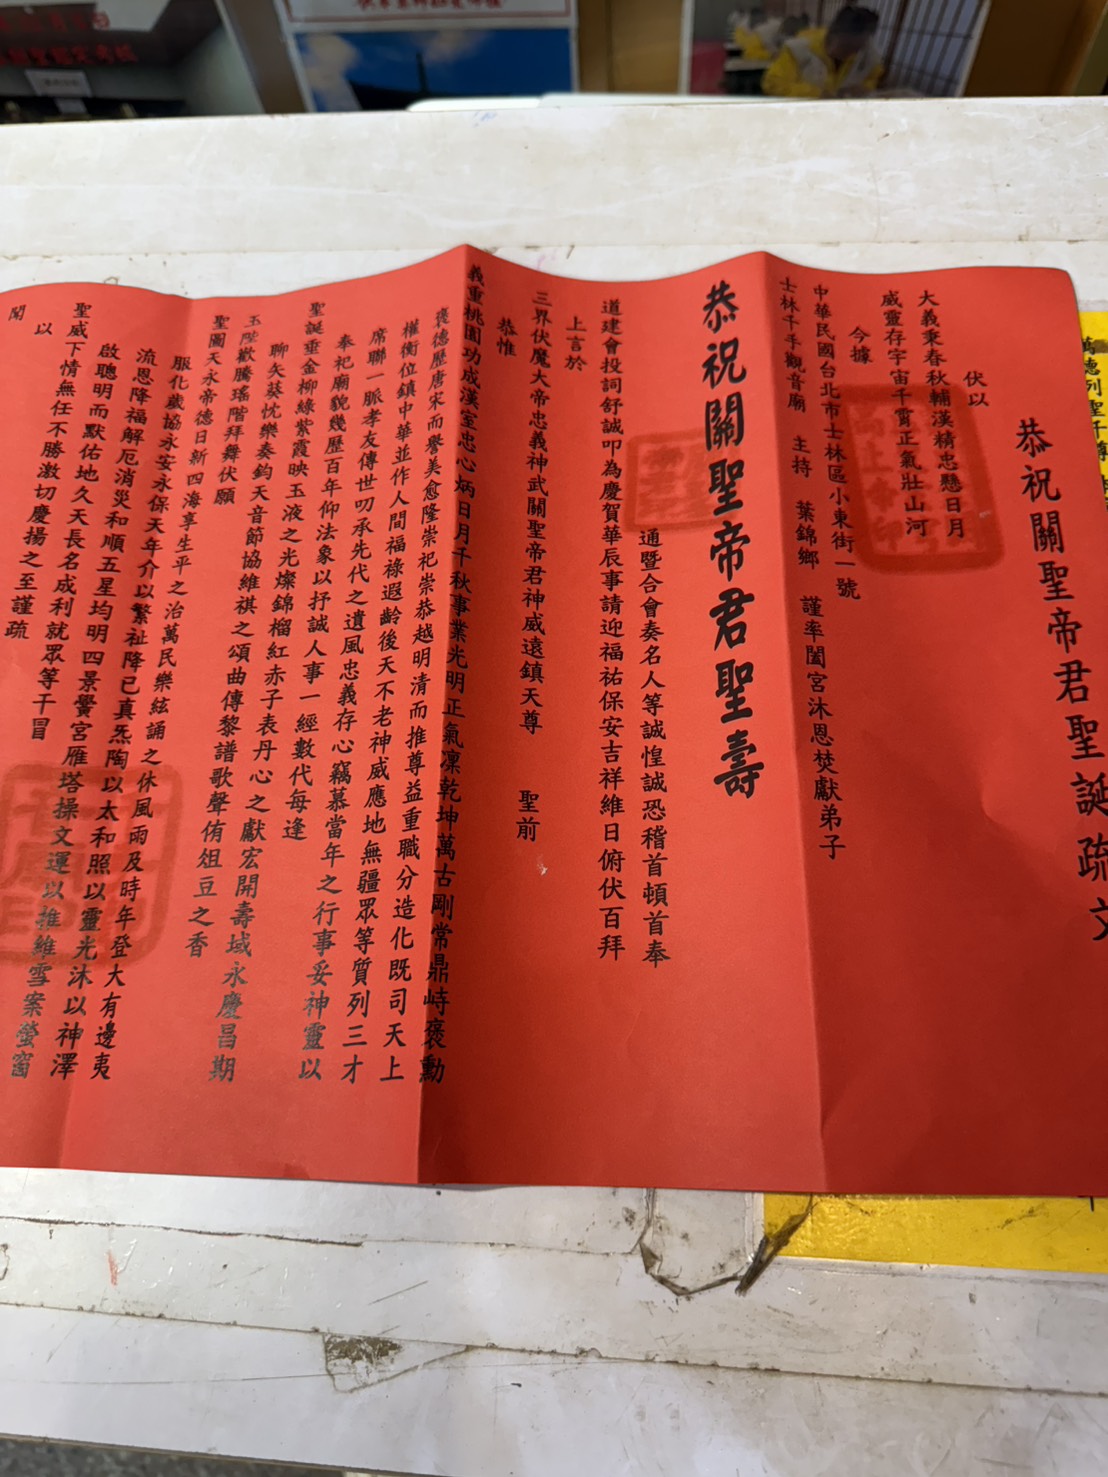 恭祝關聖帝君聖誕疏文
伏以
大義秉春秋輔漢精忠懸日月
威靈存宇宙千霄正氣壯山河
今據
中華民國台北市士林區小東街一號
士林千手觀音廟 主持 葉錦鄉 謹率闔宮沐恩焚獻弟子
恭祝關聖帝君聖壽
通暨合會奏名人等誠惶誠恐稽首頓首奉
道建會投詞舒誠叩為慶賀華辰事請迎福祐保安吉祥維日俯伏百拜
上言於
三界伏魔大帝忠義神武關聖帝君神威遠鎮天尊 聖前
恭惟
義重桃園功成漢室忠心炳日月千秋事業光明正氣凜乾坤萬古剛常鼎峙褒勳
褒德歷唐宋而譽美愈隆崇祀崇恭越明清而推尊益重職分造化既司天上
權衡位鎮中華並作人間福祿遐齡後天不老神威應地無疆眾等質列三才
席聯一脈孝友傳世叨承先代之遺風忠義存心竊慕當年之行事妥神靈以
奉祀廟貌幾歷百年仰法象以抒誠人事一經數代每逢
聖誕垂金柳綠紫霞映玉液之光燦錦榴紅赤子表丹心之獻宏開壽域永慶昌期
聊矢葵忱樂奏鈞天音節協維祺之頌曲傳黎譜歌聲侑俎豆之香
玉陛歡騰瑤階拜舞伏願
聖圖天永帝德日新四海享生平之治萬民樂絃誦之休風雨及時年登大有邊夷
服化歲協永安永保天年介以繁祉降已真炁陶以太和照以靈光沐以神澤
流恩降福解厄消災和順五星均明四景黌宮雁塔操文運以推維雪案螢窗
啟聰明而默佑地久天長名成利就眾等干冒
聖威下情無任不勝激切慶揚之至謹疏
以
聞